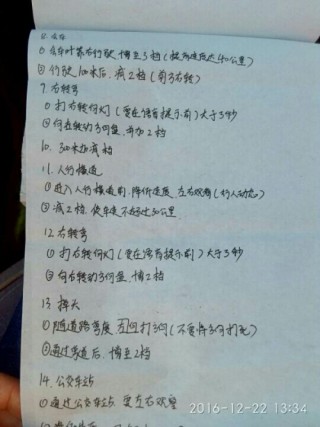 8. 会车
① 会车时靠右行驶, 换至3档 (提高速度达40公里)
② 行驶100米后, 减2档 (前方右转)
9. 右转弯
① 打右转向灯 (要在语音提示前) 大于3秒
② 向右转方向盘, 再加2档
10. 300米后减档
11. 人行横道
① 进入人行横道前, 降低速度, 左右观看 (行人动态)
② 减2档, 使车速不超过30公里
12. 右转弯
① 打右转向灯 (要在语音提示前) 大于3秒
② 向右转方向盘, 换2档
13. 掉头
① 随道路弯度, 左回打方向 (不要将方向打死)
② 通过弯道后, 换至2档
14. 公交车站
① 通过公交车站 要左右观望
2016-12-22 13:34